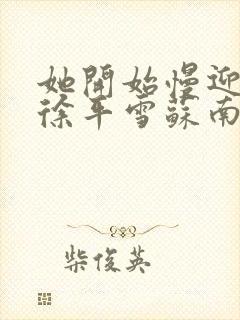 她開始慢迎
徐平雪蘇南
柴俊英